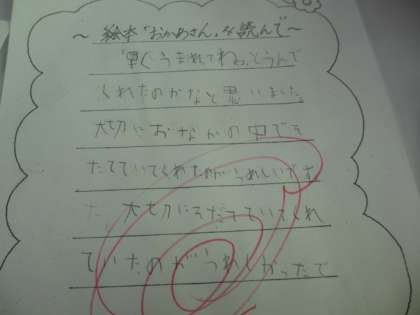 ～絵本「おかあさん」を読んで～
「早くうまれてね。」とうんで
くれたのかなと思いました。
大切におなかの中でそ
だてていてくれたのがうれしいです
た 大切にそだてていてくれ
ていたのがうれしかったで